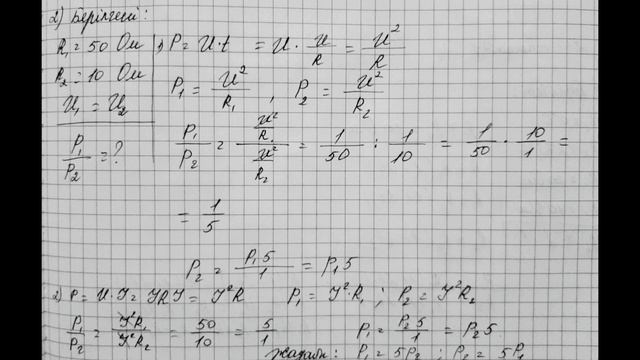 2) Берілгені:
R₁ = 50 Ом
R₂ = 10 Ом
U₁ = U₂
P₁/P₂ = ?
1) P = U·t = U · U/R = U²/R
P₁ = U²/R₁ , P₂ = U²/R₂
P₁/P₂ = (U²/R₁)/(U²/R₂) = 1/50 : 1/10 = 1/50 · 10/1 =
= 1/5
P₂ = P₁5/1 = P₁5
2) P = U·J = JRJ = J²R P₁ = J²·R₁ ; P₂ = J²R₂
P₁/P₂ = J²R₁/J²R₂ = 50/10 = 5/1 P₁ = P₂5/1 = P₂5
Жауабы: P₁ = 5P₂ ; P₂ = 5P₁